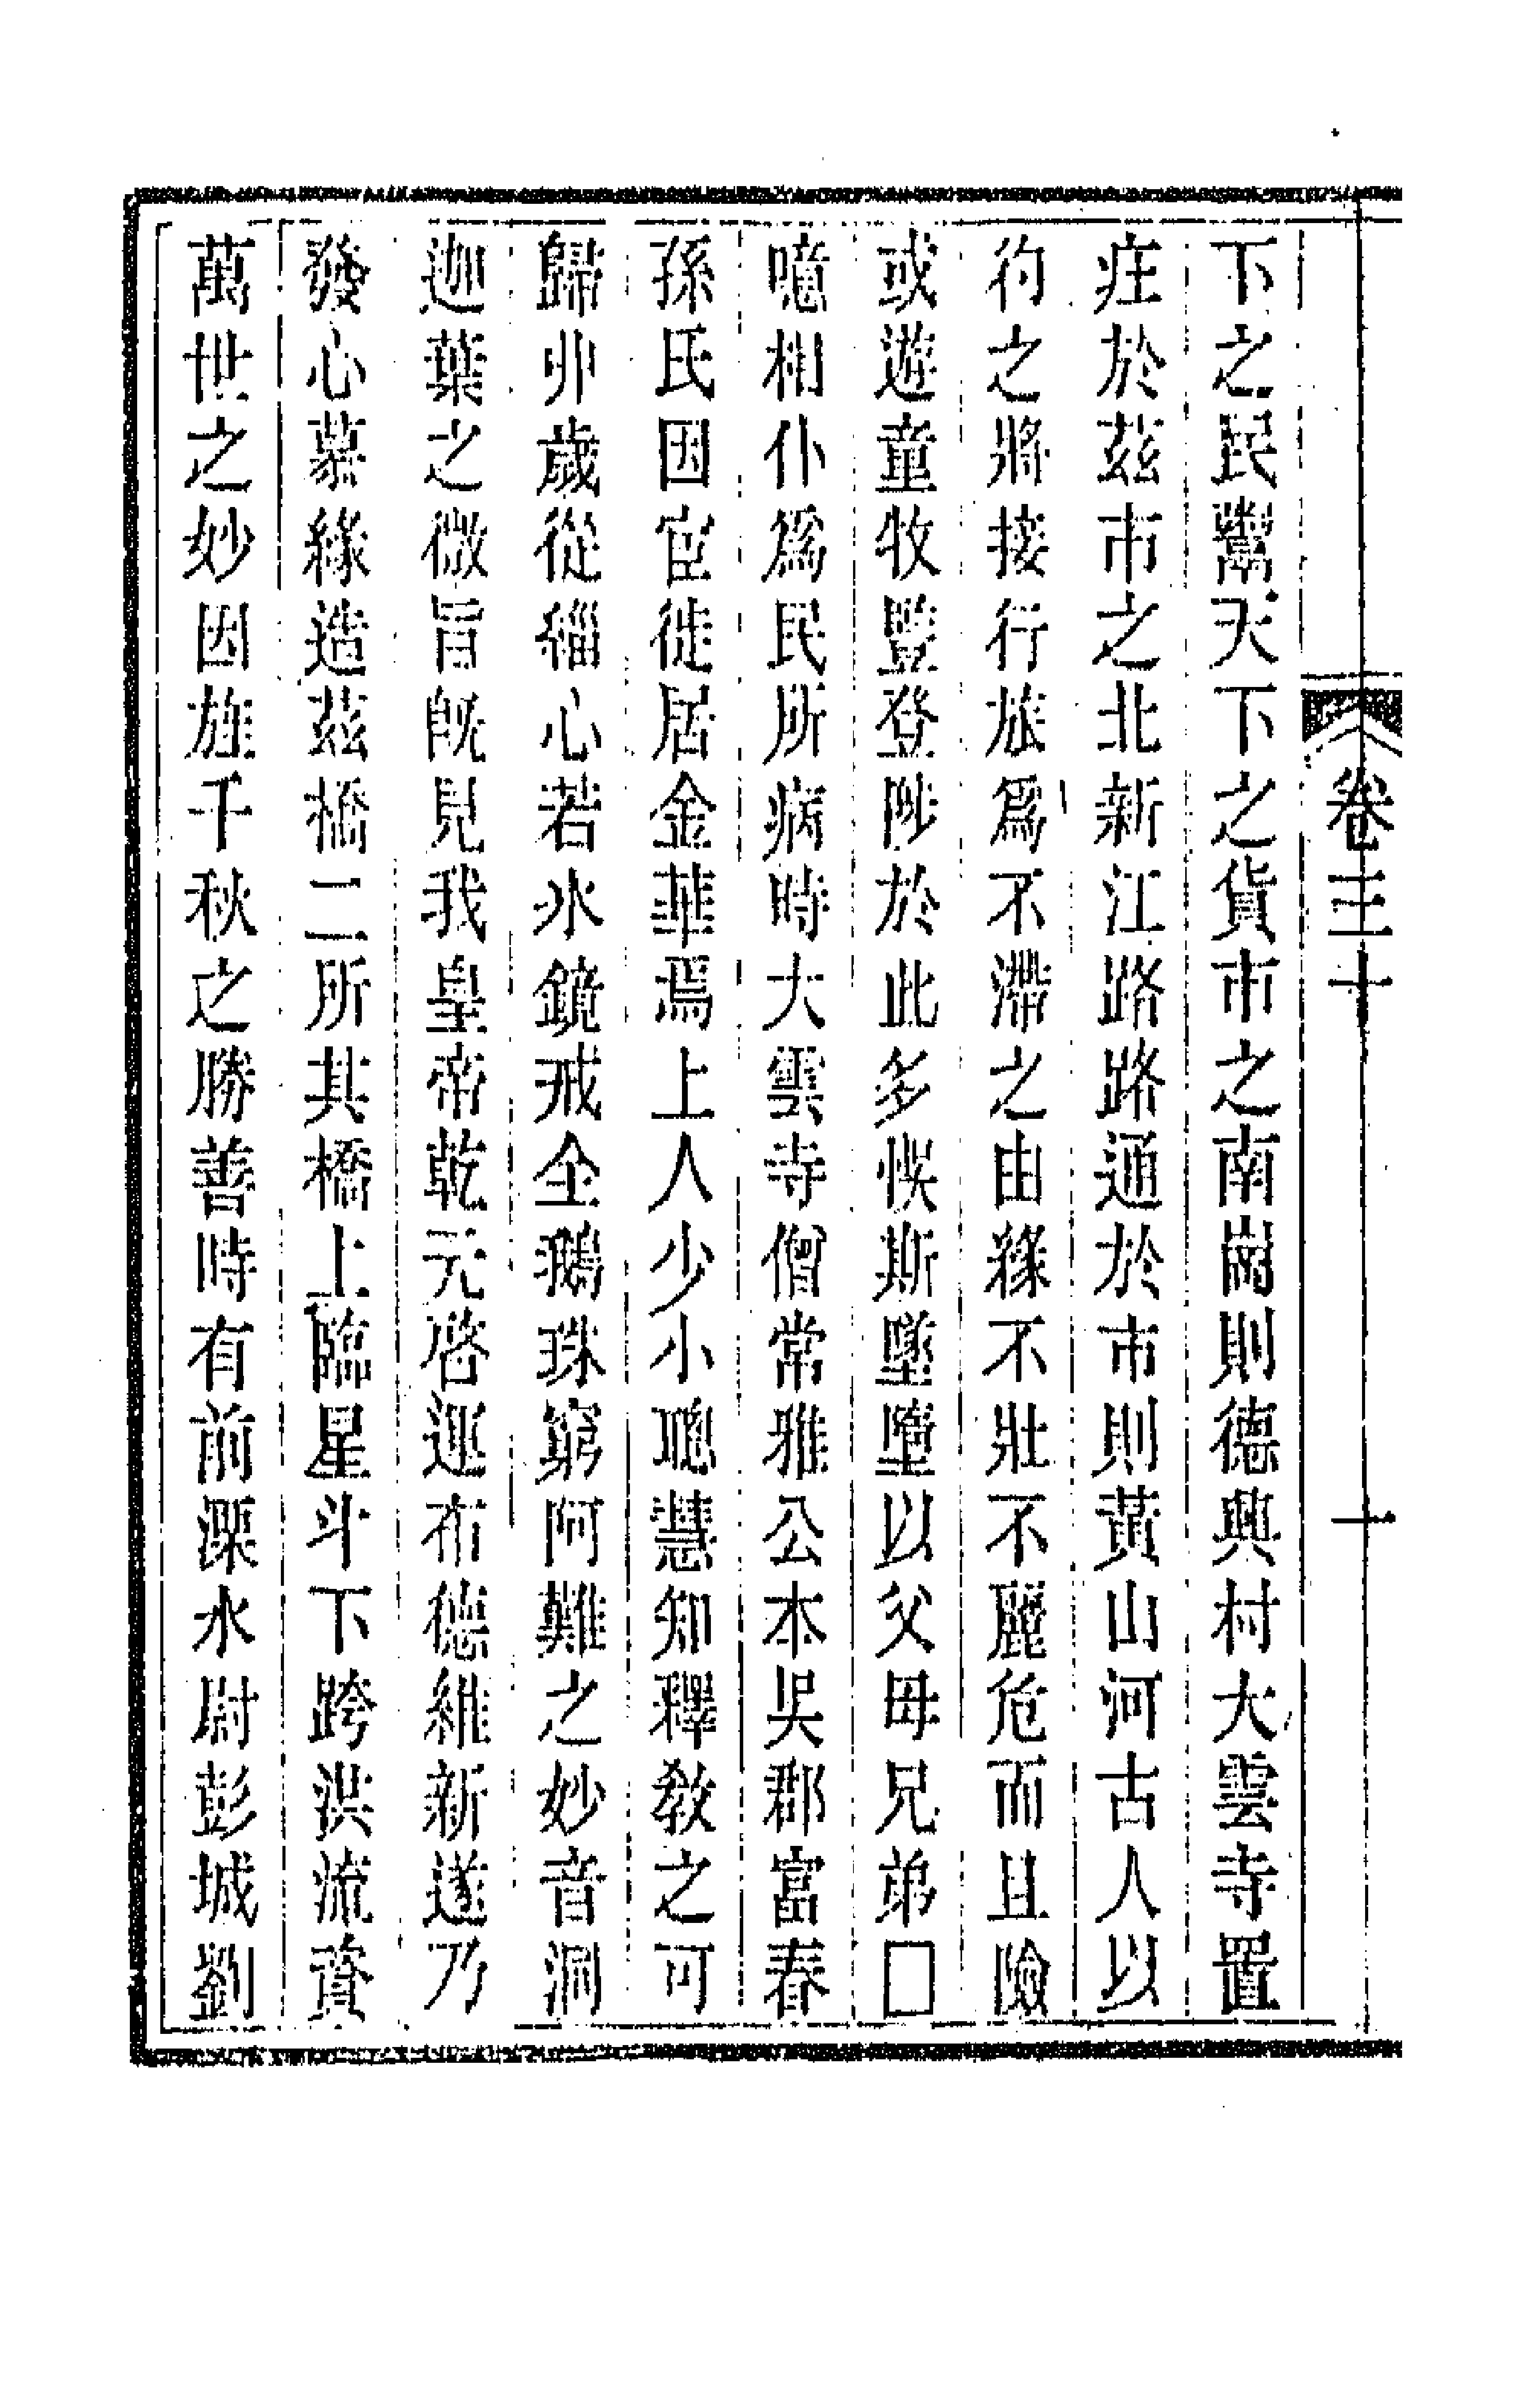 卷三十
十
下之民鬻天下之貨市之南崗則德興村大雲寺置
莊於茲市之北新江路路通於市則黃山河古人以
彴之將接行旅爲不滯之由緣不壯不麗危而且險
或遊童牧豎登陟於此多悞斯墜墮以父母兄弟□
噫相仆爲民所病時大雲寺僧常雅公本吳郡富春
孫氏因宦徙居金華焉上人少小聰慧知釋教之可
歸丱歲從緇心若水鏡戒全鵝珠窮阿難之妙音洞
迦葉之微旨旣見我皇帝乾元啓運布德維新遂乃
發心募緣造茲橋二所其橋上臨星斗下跨洪流資
萬世之妙因旌千秋之勝善時有前溧水尉彭城劉